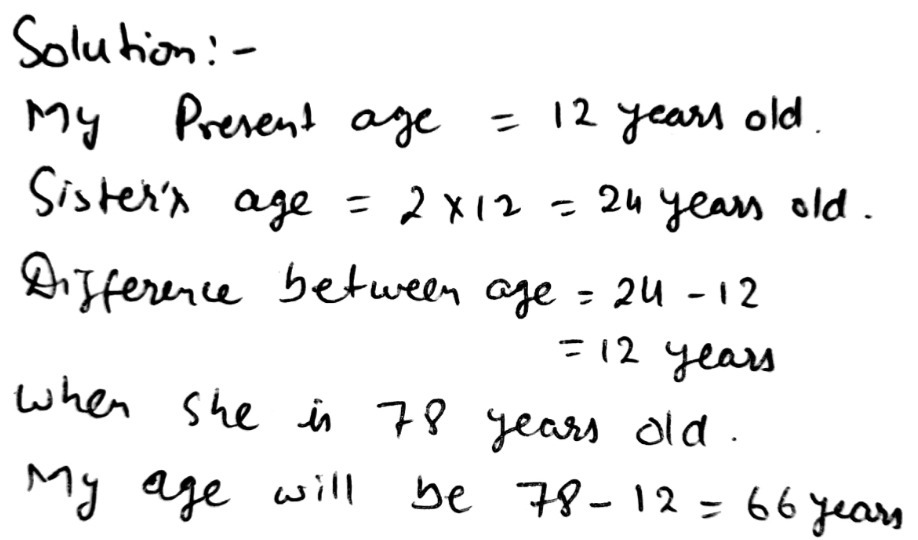 Solution:-
My Present age = 12 years old.
Sister's age = 2 x 12 = 24 years old.
Difference between age = 24 - 12
= 12 years
when she is 78 years old.
My age will be 78 - 12 = 66 years